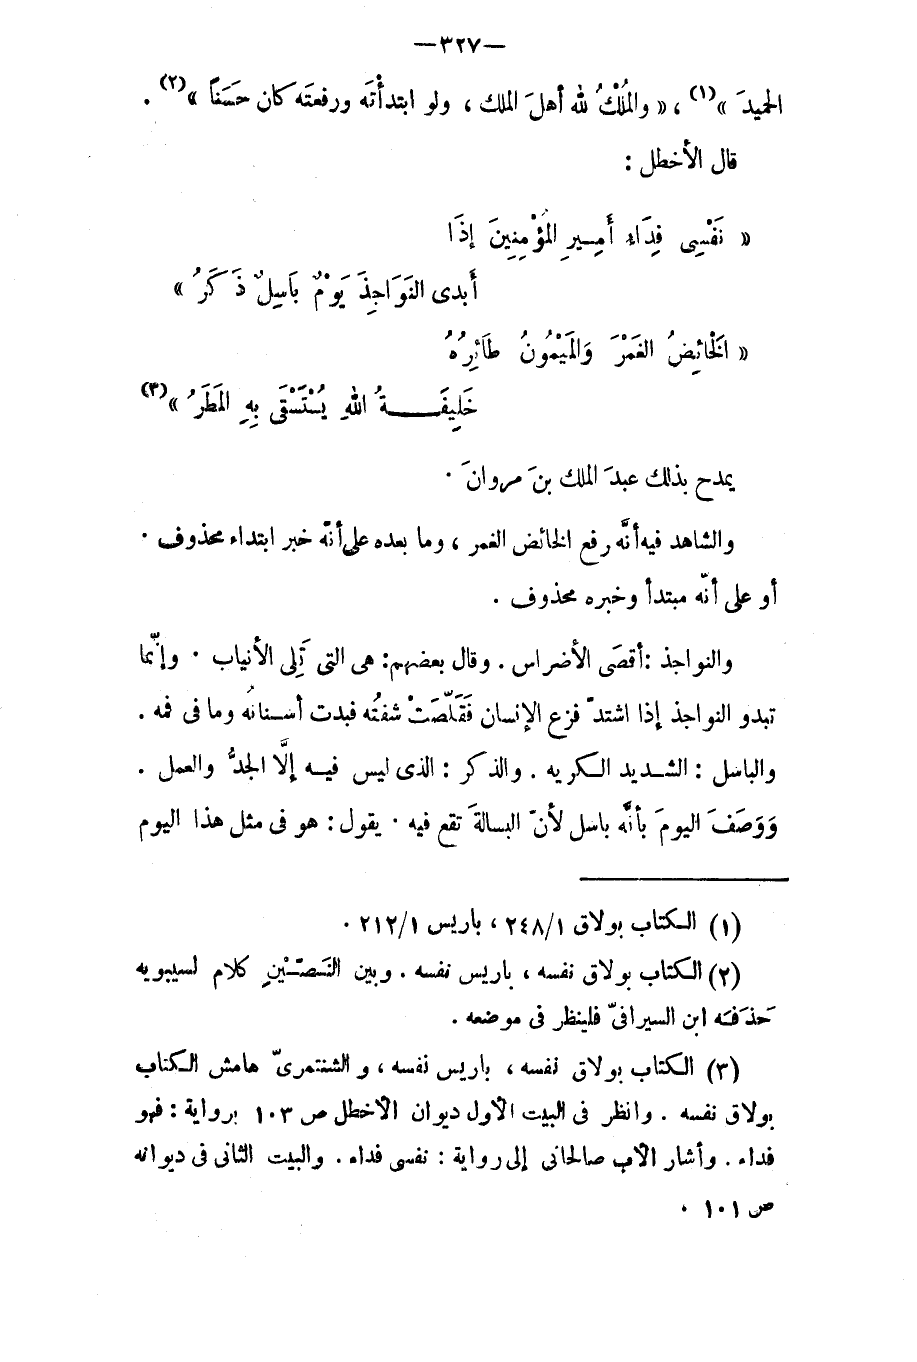 —٣٢٧—
الحميدَ »(١) ، « والمُلْكُ لله أهلَ الملك ، ولو ابتدأْتَه ورفعتَه كان حَسَناً »(٢) .
قال الأخطل :
« نَفْسِى فِدَاءِ أَمِيرِ المُؤْمِنِينَ إذَا
أَبدى النَوَاجِذَ يَوْمٌ بَاسِلٌ ذَكَرُ »
« الْخَائِضُ الغَمْرَ وَالمَيْمُونُ طَائِرُهُ
خَلِيفَـــةُ اللهِ يُسْتَسْقَى بِهِ المَطَرُ »(٣)
يمدح بذلك عبدَ الملك بنَ مروانَ .
والشاهد فيه أنَّه رفع الخائض الغمر ، وما بعده على أنّه خبر ابتداء محذوف .
أو على أنّه مبتدأ وخبره محذوف .
والنواجذ : أقصَى الأضراس . وقال بعضهم: هى التى تَلِى الأنياب . وإنّما
تبدو النواجذ إذا اشتدّ فزع الإنسان فَقَلّصَتْ شفتُه فبدت أسـنانُه وما فى فمه .
والباسل : الشـديد الـكريه . والذكر : الذى ليس فيـه إلَّا الجدُّ والعمل .
وَوَصَفَ اليومَ بأنَّه باسل لأنّ البسالةَ تقع فيه . يقول : هو فى مثل هذا اليوم
(١) الـكتاب بولاق ٢٤٨/١ ، باريس ٢١٢/١ .
(٢) الـكتاب بولاق نفسه ، باريس نفسه . وبين النَـصّـيْنِ كلام لسيبويه
حَذَفَـه ابن السيرافىّ فلينظر فى موضعه .
(٣) الـكتاب بولاق نفسه ، باريس نفسه ، و الشنتمرىّ هامش الـكتاب
بولاق نفسه . وانظر فى البيت الأول ديوان الأخطل ص ١٠٣ برواية : فهو
فداء . وأشار الأب صالحانى إلى رواية : نفسى فداء . والبيت الثانى فى ديوانه
ص ١٠١ .